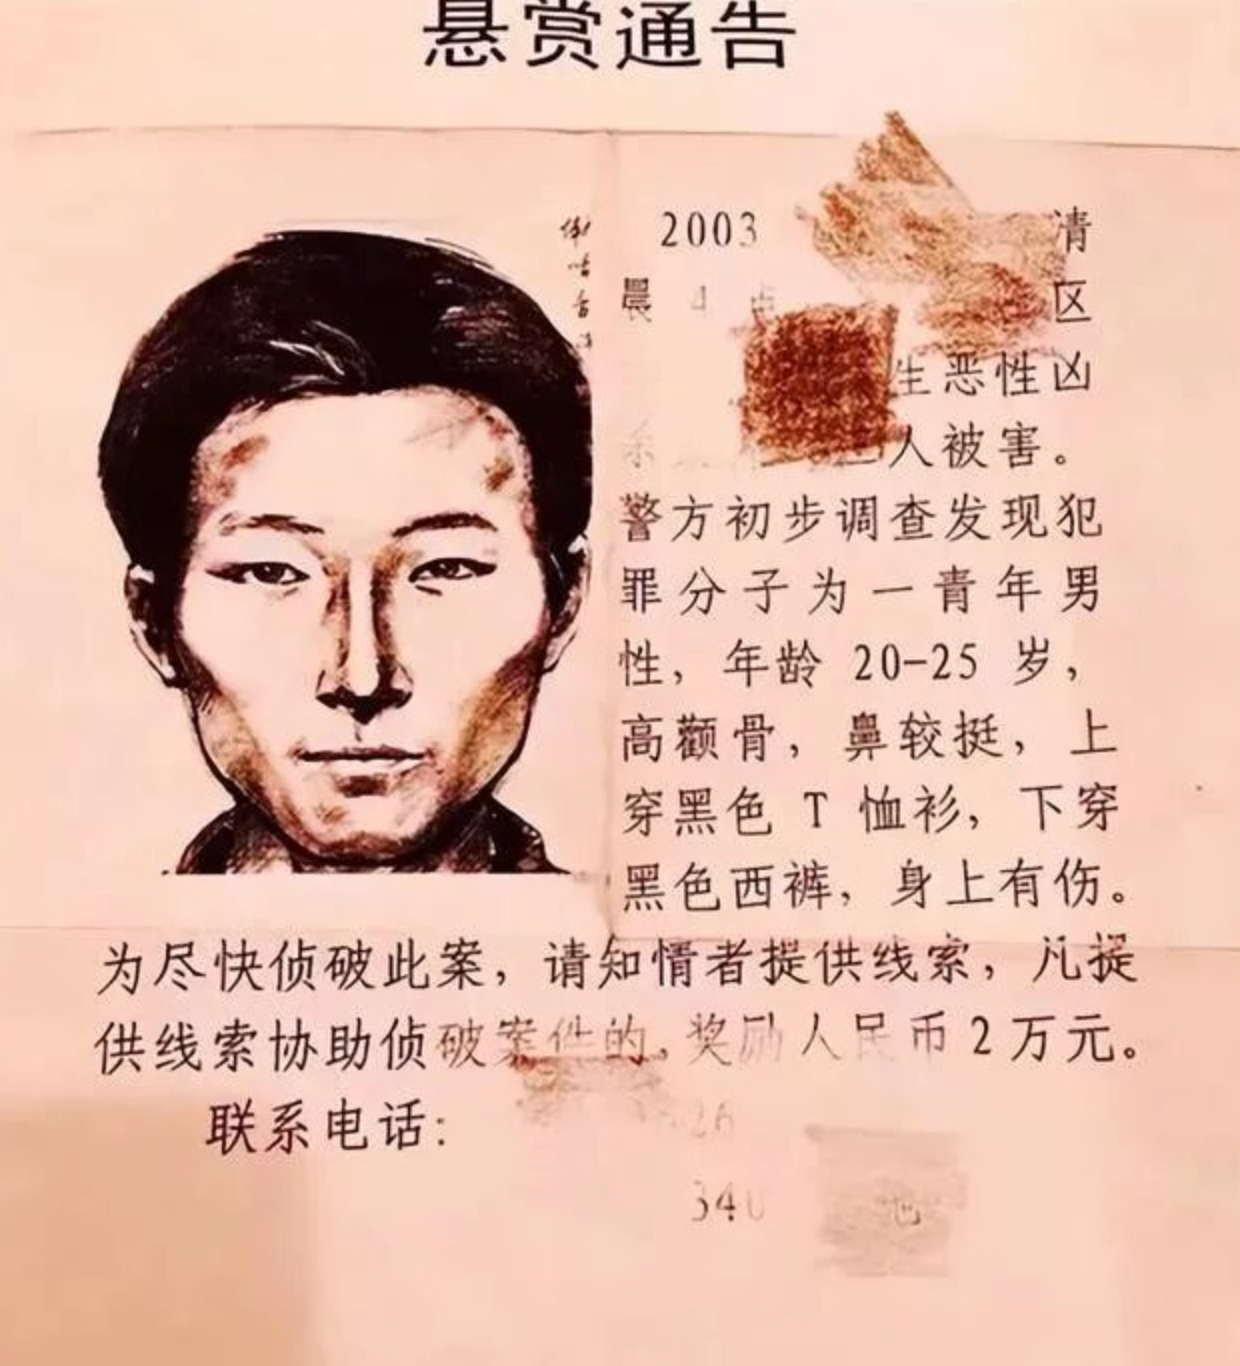 悬赏通告
2003 清
晨 4 点 区
生恶性凶
人被害。
警方初步调查发现犯
罪分子为一青年男
性，年龄 20-25 岁，
高颧骨，鼻较挺，上
穿黑色 T 恤衫，下穿
黑色西裤，身上有伤。
为尽快侦破此案，请知情者提供线索，凡提
供线索协助侦破案件的，奖励人民币2万元。
联系电话：
26
340